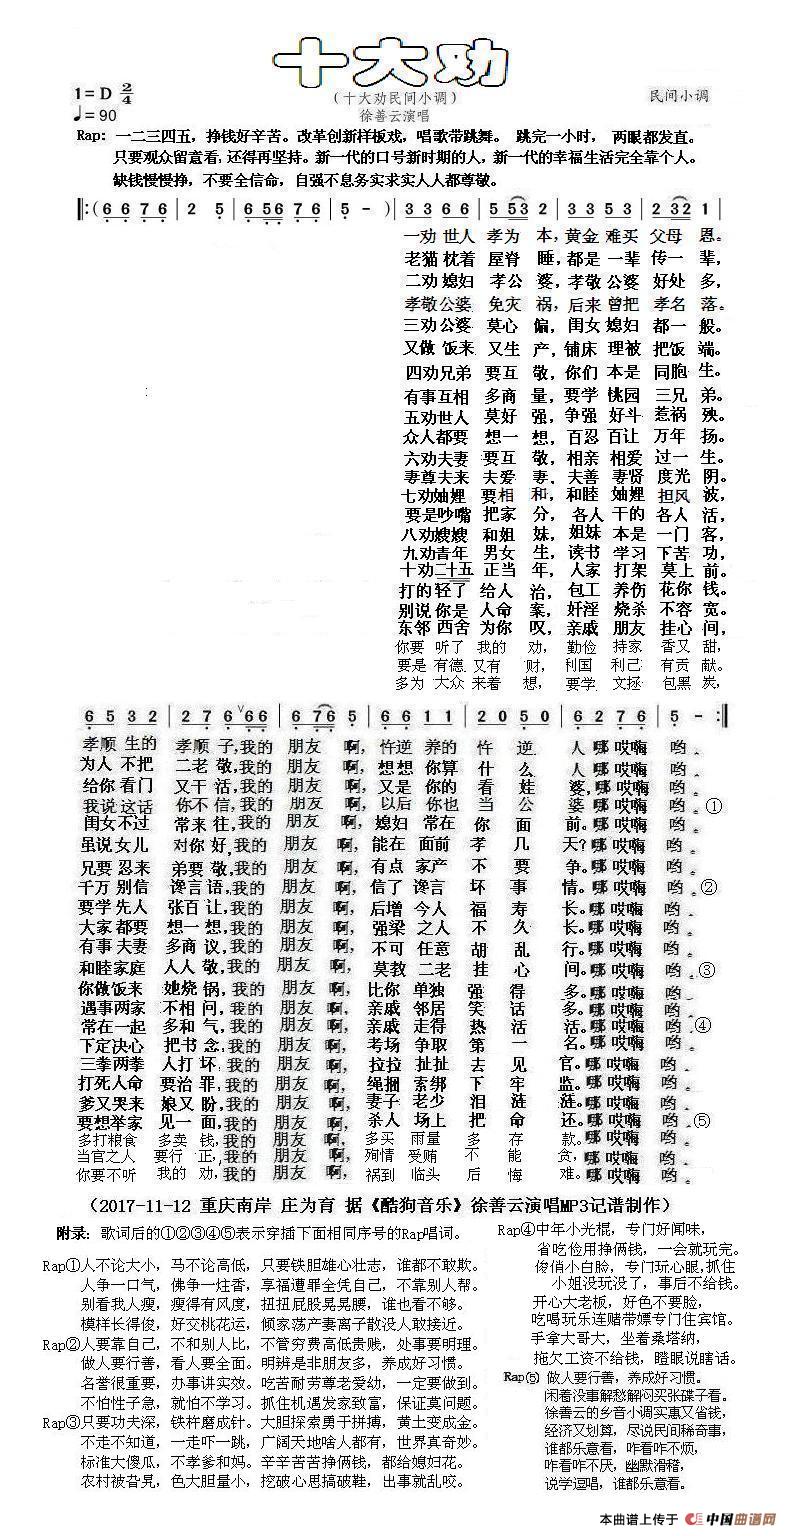 十大劝
(十大劝民间小调)
1=D 2/4
民间小调
♩=90
徐善云演唱
Rap: 一二三四五，挣钱好辛苦。改革创新样板戏，唱歌带跳舞。 跳完一小时， 两眼都发直。
只要观众留意看，还得再坚持。新一代的口号新时期的人，新一代的幸福生活完全靠个人。
缺钱慢慢挣，不要全信命，自强不息务实求实人人都尊敬。
‖:(6 6 7 6 | 2 5 | 6 56 7 6 | 5 - )| 3 3 6 6 | 5 53 2 | 3 3 5 3 | 2 32 1 |
一劝 世人 孝为 本，黄金 难买 父母 恩。
老猫 枕着 屋脊 睡，都是 一辈 传一 辈，
二劝 媳妇 孝公 婆，孝敬 公婆 好处 多，
孝敬 公婆 免灾 祸，后来 曾把 孝名 落。
三劝 公婆 莫心 偏，闺女 媳妇 都一 般。
又做 饭来 又生 产，铺床 理被 把饭 端。
四劝 兄弟 要互 敬，你们 本是 同胞 生。
有事 互相 多商 量，要学 桃园 三兄 弟。
五劝 世人 莫好 强，争强 好斗 惹祸 殃。
众人 都要 想一 想，百忍 百让 万年 扬。
六劝 夫妻 要互 敬，相亲 相爱 过一 生。
妻尊 夫来 夫爱 妻，夫善 妻贤 度光 阴。
七劝 妯娌 要相 和，和睦 妯娌 担风 波，
要是 吵嘴 把家 分，各人 干的 各人 活，
八劝 嫂嫂 和姐 妹，姐妹 本是 一门 客，
九劝 青年 男女 生，读书 学习 下苦 功，
十劝 二十五 正当 年，人家 打架 莫上 前。
打的 轻了 给人 治，包工 养伤 花你 钱。
别说 你是 人命 案，奸淫 烧杀 不容 宽。
东邻 西舍 为你 叹，亲戚 朋友 挂心 间，
你要 听了 我的 劝，勤俭 持家 香又 甜，
要是 有德 又有 财，利国 利己 有贡 献。
多为 大众 来着 想，要学 文拯 包黑 炭，
6 5 3 2 | 2 7 6 66 | 6 76 5 | 6 6 1 1 | 2 0 5 0 | 6 2 7 6 | 5 - :‖
孝顺 生的 孝顺 子，我的 朋友 啊，忤逆 养的 忤 逆 人 哪 哎嗨 哟。
为人 不把 二老 敬，我的 朋友 啊，想想 你算 什 么 人 哪 哎嗨 哟。
给你 看门 又干 活，我的 朋友 啊，又是 你的 看 娃 婆，哪 哎嗨 哟。
我说 这话 你不 信，我的 朋友 啊，以后 你也 当 公 婆 哪 哎嗨 哟。①
闺女 不过 常来 往，我的 朋友 啊，媳妇 常在 你 面 前。哪 哎嗨 哟。
虽说 女儿 对你 好，我的 朋友 啊，能在 面前 孝 几 天？哪 哎嗨 哟。
兄要 忍来 弟要 敬，我的 朋友 啊，有点 家产 不 要 争。哪 哎嗨 哟。
千万 别信 谗言 语，我的 朋友 啊，信了 谗言 坏 事 情。哪 哎嗨 哟。②
要学 先人 张百 让，我的 朋友 啊，后增 今人 福 寿 长。哪 哎嗨 哟。
大家 都要 想一 想，我的 朋友 啊，强梁 之人 不 久 长。哪 哎嗨 哟。
有事 夫妻 多商 议，我的 朋友 啊，不可 任意 胡 乱 行。哪 哎嗨 哟。
和睦 家庭 人人 敬，我的 朋友 啊，莫教 二老 挂 心 间。哪 哎嗨 哟。③
你做 饭来 她烧 锅，我的 朋友 啊，比你 单独 强 得 多。哪 哎嗨 哟。
遇事 两家 不相 问，我的 朋友 啊，亲戚 邻居 笑 话 多。哪 哎嗨 哟。
常在 一起 多和 气，我的 朋友 啊，亲戚 走得 热 活 活。哪 哎嗨 哟。④
下定 决心 把书 念，我的 朋友 啊，考场 争取 第 一 名。哪 哎嗨 哟。
三拳 两拳 人打 坏，我的 朋友 啊，拉拉 扯扯 去 见 官。哪 哎嗨 哟。
打死 人命 要治 罪，我的 朋友 啊，绳捆 索绑 下 牢 监。哪 哎嗨 哟。
爹又 哭来 娘又 盼，我的 朋友 啊，妻子 老少 泪 涟 涟。哪 哎嗨 哟。
要想 举家 见一 面，我的 朋友 啊，杀人 场上 把 命 还。哪 哎嗨 哟。⑤
多打 粮食 多卖 钱，我的 朋友 啊，多买 雨量 多 存 款。哪 哎嗨 哟。
当官 之人 要行 正，我的 朋友 啊，殉情 受贿 不 能 贪，哪 哎嗨 哟。
你要 不听 我的 劝，我的 朋友 啊，祸到 临头 后 悔 难。哪 哎嗨 哟。
（2017-11-12 重庆南岸 庄为育 据《酷狗音乐》徐善云演唱MP3记谱制作）
附录：歌词后的①②③④⑤表示穿插下面相同序号的Rap唱词。
Rap①人不论大小，马不论高低，只要铁胆雄心壮志，谁都不敢欺。
人争一口气，佛争一炷香，享福遭罪全凭自己，不靠别人帮。
别看我人瘦，瘦得有风度，扭扭屁股晃晃腰，谁也看不够。
模样长得俊，好交桃花运，倾家荡产妻离子散没人敢接近。
Rap②人要靠自己，不和别人比，不管穷费高低贵贱，处事要明理。
做人要行善，看人要全面。明辨是非朋友多，养成好习惯。
名誉很重要，办事讲实效。吃苦耐劳尊老爱幼，一定要做到。
不怕性子急，就怕不学习。抓住机遇发家致富，保证莫问题。
Rap③只要功夫深，铁杵磨成针。大胆探索勇于拼搏，黄土变成金。
不走不知道，一走吓一跳，广阔天地啥人都有，世界真奇妙。
标准大傻瓜，不孝爹和妈。辛辛苦苦挣俩钱，都给媳妇花。
农村被旮旯，色大胆量小，挖破心思搞破鞋，出事就乱咬。
Rap④中年小光棍，专门好闻味，
省吃俭用挣俩钱，一会就玩完。
俊俏小白脸，专门玩心眼，抓住
小姐没玩没了，事后不给钱。
开心大老板，好色不要脸，
吃喝玩乐连赌带嫖专门住宾馆。
手拿大哥大，坐着桑塔纳，
拖欠工资不给钱，瞪眼说瞎话。
Rap⑤ 做人要行善，养成好习惯。
闲着没事解愁解闷买张碟子看。
徐善云的乡音小调实惠又省钱，
经济又划算，尽说民间稀奇事，
谁都乐意看，咋看咋不烦，
咋看咋不厌，幽默滑稽，
说学逗唱，谁都乐意看。
本曲谱上传于 中国曲谱网